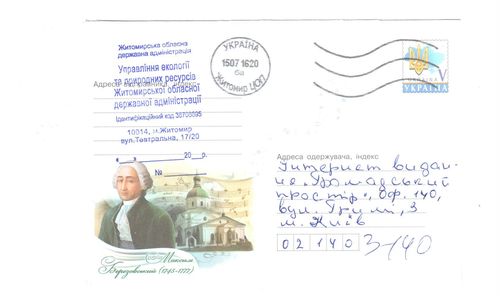 Житомирська обласна
державна адміністрація
Управління екології
та природних ресурсів
Житомирської обласної
державної адміністрації
Ідентифікаційний код 38708695
10014, м.Житомир
вул.Театральна, 17/20
"  "  20  р.
№
УКРАЇНА
1507 1620
ба
ЖИТОМИР ЧПП
V
УКРАЇНА
УКРАЇНА
Адреса одержувача, індекс
Інтернет видан-
ня "Громадський
простір", Оф. 140,
вул. 3
м. Київ
02140
3-140
Максим
Березовський (1745-1777)